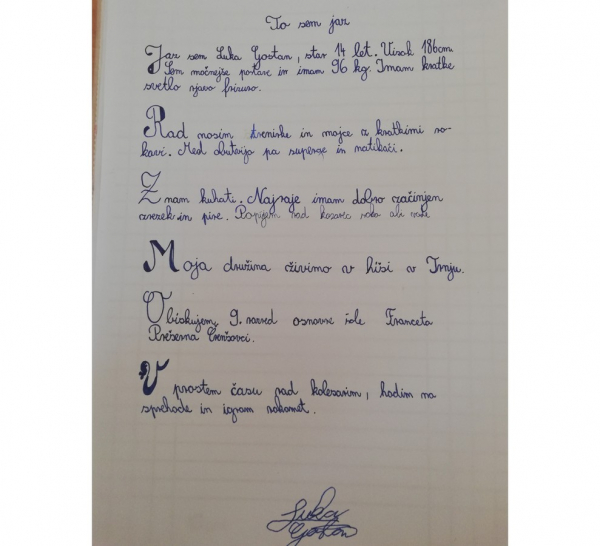 To sem jaz
Jaz sem Luka Gostan, star 14 let. Visok 186cm.
Sem močnejše postave in imam 96 kg. Imam kratke
svetlo rjavo frizuro.
Rad nosim trenirke in majce z kratkimi ro-
kavi. Med obuterijo pa superge in natikači.
Znam kuhati. Najraje imam dobro začinjen
zrezek in pire. Popijem rad
Moja družina živimo v hiši v Trnju.
Obiskujem 9. razred osnovne šole Franceta
Prešerna Črenšovci.
V prostem času rad kolesarim, hodim na
sprehode in igram rokomet.
Luka
Gostan